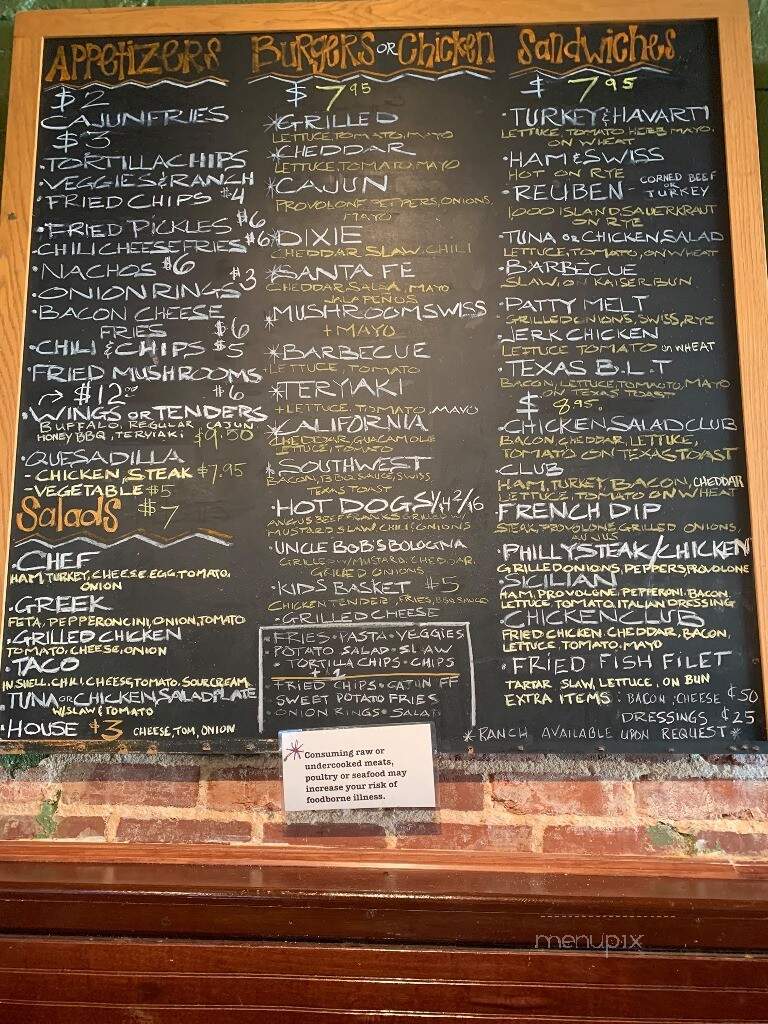 Appetizers
$2
CAJUN FRIES
$3
•TORTILLA CHIPS
•VEGGIES & RANCH
•FRIED CHIPS $4
•FRIED PICKLES $6
•CHILI CHEESE FRIES $6
•NACHOS $6
•ONION RINGS $3
•BACON CHEESE
FRIES $6
•CHILI & CHIPS $5
•FRIED MUSHROOMS
$6
→ $12.00
•WINGS OR TENDERS
BUFFALO, REGULAR CAJUN
HONEY BBQ, TERYIAKI $9.50
•QUESADILLA
- CHICKEN, STEAK $7.95
- VEGETABLE $5
Salads $7
•CHEF
HAM, TURKEY, CHEESE, EGG, TOMATO,
ONION
•GREEK
FETA, PEPPERONCINI, ONION, TOMATO
•GRILLED CHICKEN
TOMATO, CHEESE, ONION
•TACO
IN SHELL, CHILI, CHEESE, TOMATO, SOUR CREAM
•TUNA OR CHICKEN SALAD PLATE
W/SLAW & TOMATO
•HOUSE $3 CHEESE, TOM, ONION
Burgers OR Chicken
$ 7.95
*GRILLED
LETTUCE, TOMATO, MAYO
*CHEDDAR
LETTUCE, TOMATO, MAYO
*CAJUN
PROVOLONE, PEPPERS, ONIONS,
MAYO
*DIXIE
CHEDDAR SLAW, CHILI
*SANTA FE
CHEDDAR, SALSA, MAYO
JALAPEÑOS
*MUSHROOM SWISS
+ MAYO
*BARBECUE
LETTUCE, TOMATO
*TERYIAKI
+LETTUCE, TOMATO, MAYO
*CALIFORNIA
CHEDDAR, GUACAMOLE
LETTUCE, TOMATO
*SOUTHWEST
BACON, BBQ SAUCE, SWISS
TEXAS TOAST
•HOT DOGS 1/$4 2/$6
MUSTARD SLAW CHILI & ONIONS
UNCLE BOB'S BOLOGNA
GRILLED W/ MUSTARD, CHEDDAR,
GRILLED ONIONS
•KIDS BASKET $5
CHICKEN TENDER, FRIES, BBQ SAUCE
•GRILLED CHEESE
•FRIES •PASTA •VEGGIES
POTATO SALAD •SLAW
•TORTILLA CHIPS •CHIPS
FRIED CHIPS •CAJUN FF
SWEET POTATO FRIES
ONION RINGS •SALAD
Sandwiches
$ 7.95
•TURKEY & HAVARTI
LETTUCE, TOMATO, HERB MAYO,
ON WHEAT
•HAM & SWISS
HOT ON RYE
•REUBEN - CORNED BEEF
OR TURKEY
1000 ISLAND, SAUERKRAUT
ON RYE
•TUNA OR CHICKEN SALAD
LETTUCE, TOMATO, ON WHEAT
•BARBECUE
SLAW, ON KAISER BUN
•PATTY MELT
GRILLED ONIONS, SWISS, RYE
•JERK CHICKEN
LETTUCE TOMATO ON WHEAT
•TEXAS B.L.T
BACON, LETTUCE, TOMATO, MAYO
ON TEXAS TOAST
$ 8.95
•CHICKEN SALAD CLUB
BACON CHEDDAR, LETTUCE,
TOMATO ON TEXAS TOAST
•CLUB
HAM, TURKEY, BACON, CHEDDAR
LETTUCE, TOMATO ON WHEAT
FRENCH DIP
STEAK, PROVOLONE, GRILLED ONIONS,
AU JUS
•PHILLY STEAK/CHICKEN
GRILLED ONIONS, PEPPERS, PROVOLONE
•SICILIAN
HAM, PROVOLONE, PEPPERONI, BACON
LETTUCE TOMATO, ITALIAN DRESSING
•CHICKEN CLUB
FRIED CHICKEN, CHEDDAR, BACON,
LETTUCE, TOMATO, MAYO
•FRIED FISH FILET
TARTAR SLAW, LETTUCE, ON BUN
EXTRA ITEMS: BACON, CHEESE ¢50
DRESSINGS ¢25
*RANCH AVAILABLE UPON REQUEST*
* Consuming raw or
undercooked meats,
poultry or seafood may
increase your risk of
foodborne illness.
menupix